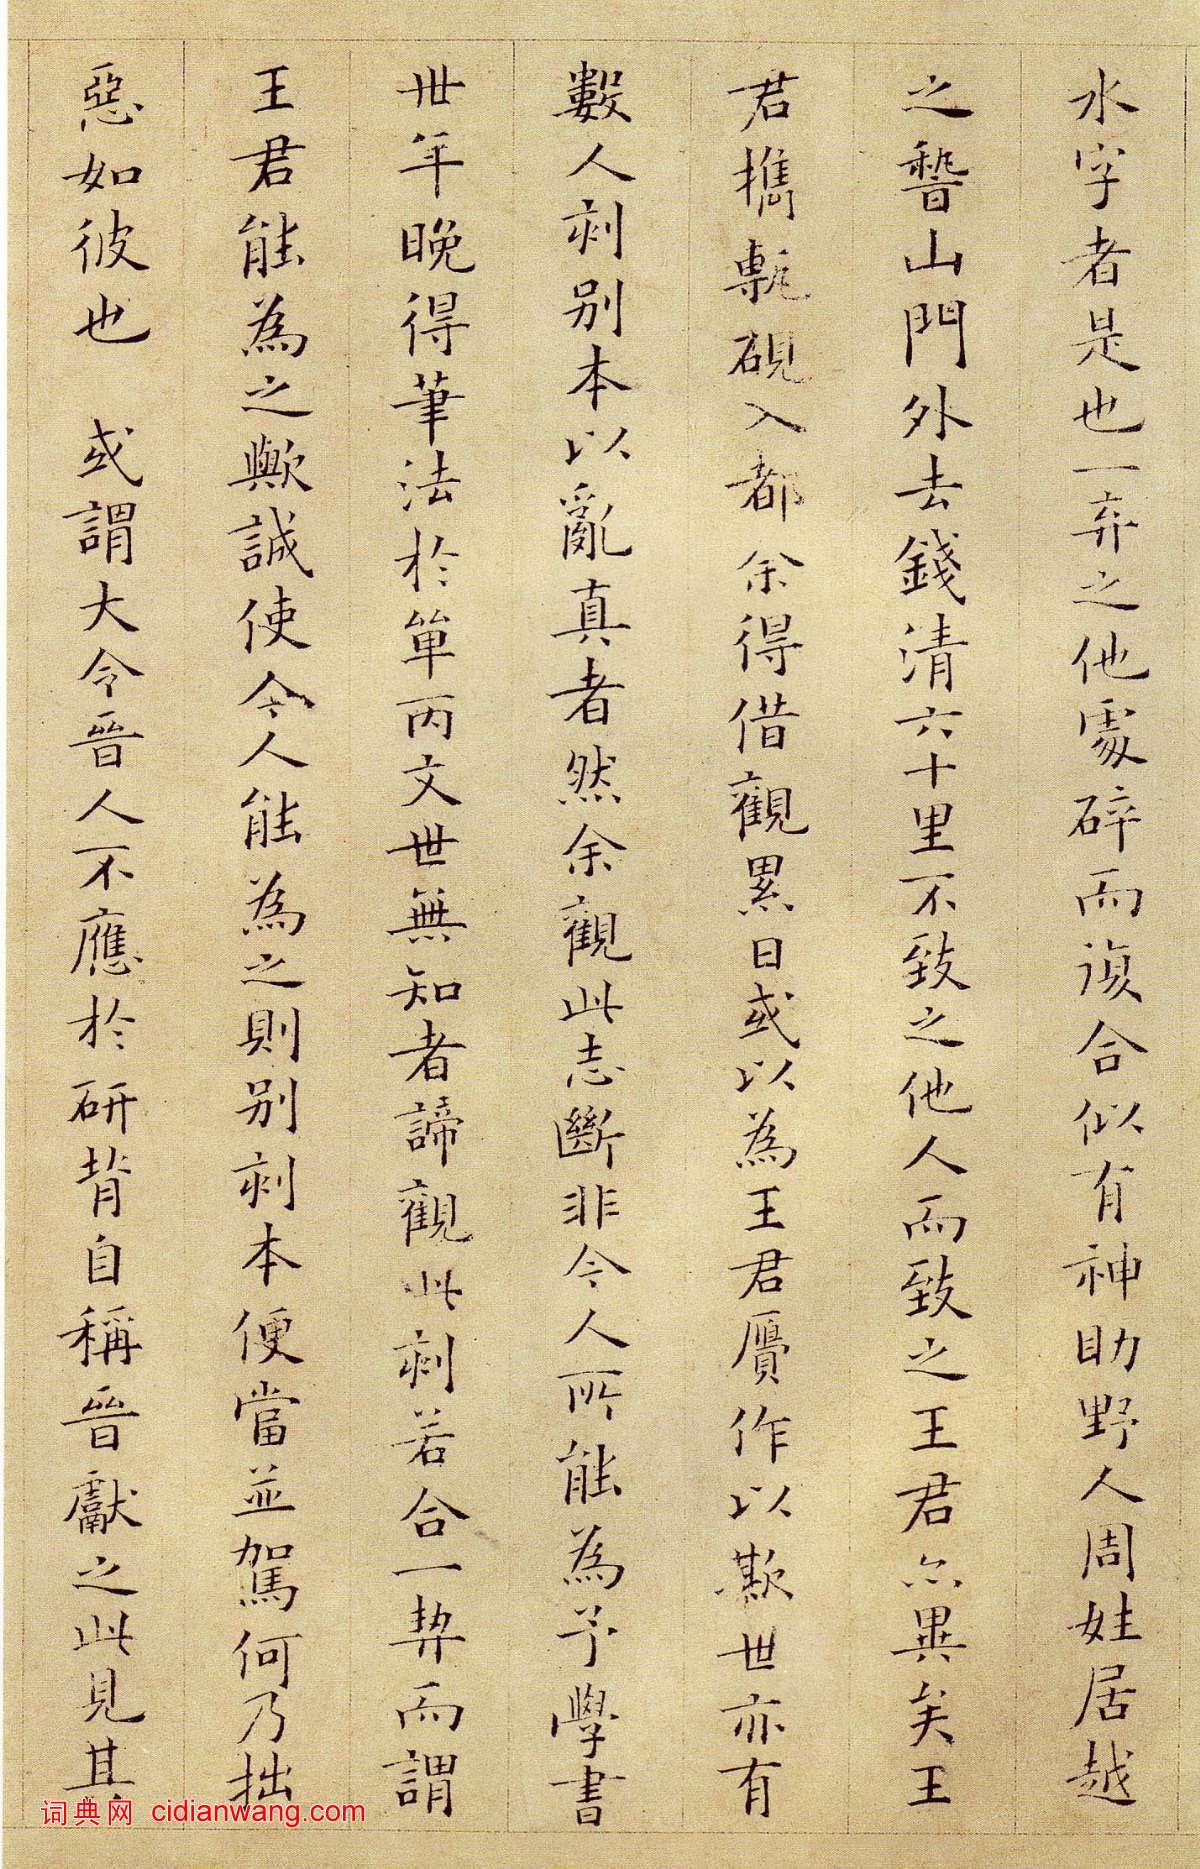 水字者是也一弃之他處碎而復合似有神助野人周姓居越
之暓山門外去錢清六十里不致之他人而致之王君亦異矣王
君攜甎硯入都余得借觀累日或以為王君贋作以欺世亦有
數人刻别本以亂真者然余觀此志斷非今人所能為予學書
丗年晚得筆法於單丙文世無知者諦觀此刻若合一契而謂
王君能為之歟誠使今人能為之則别刻本便當並駕何乃拙
惡如彼也 或謂大令晉人不應於研背自稱晉獻之此見其
词典网 cidianwang.com